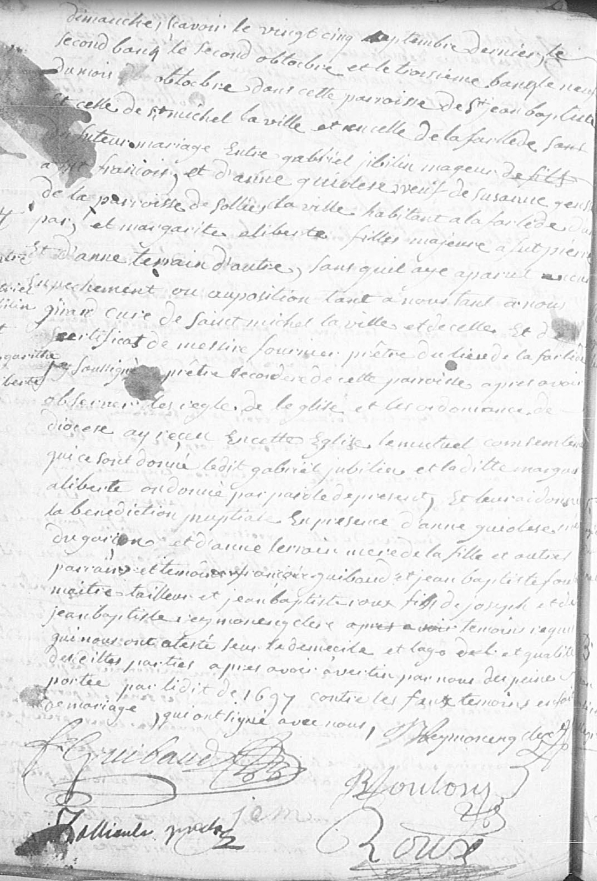 dimanche, scavoir le vingt cinq septembre dernier, le
second bank le second obtobre et le troisième bang le neuf
du mois obtobre dans cette parroisse de St jean baptiste
et celle de st michel la ville et en celle de la farlede sans
mariage Entre gabriel jibilin mageur de fils
francois, et d'anne guiolese veuf de susanne
de la parroisse de sollies la ville habitant a la farlede d'une
par, et margarite aliberte filles majeure a fut pierre
Et d'anne terrain d'autre, sans quil aye aparut
Enpechement ou auposition tant à nous tant à nous
girard curé de saint michel la ville et de celle Et d
sertificat de messire fournier prêtre du lieu de la farlède
soussigné prêtre secondere de cette parroisse apres avoir
observer les regle de leglise et les ordonnance de
diocèse ay reçeu En cette Eglise le mutuel consemen
qui ce sont donné ledit gabriel jubilin et laditte margue
aliberte on donné par parole de present, Et leur ai donné
la benediction nuptiale En presence d'anne guiolese
du garcon et d'anne terrain mere de la fille et autres
parrains et temoins francois guibaud et jean baptiste
maitre tailleur et jean baptiste roux fils de joseph et
jean baptiste reymoneng clerc temoins requis
qui nous ont atesté seur le demecile et lage et qualité
desdittes parties apres avoir avertin par nous des peines
portée par lidit de 1697 contre les faux temoins en fait
de mariage, qui ont signé avec nous, Reymoneng clerc
Guibaud
Toulon
Roux